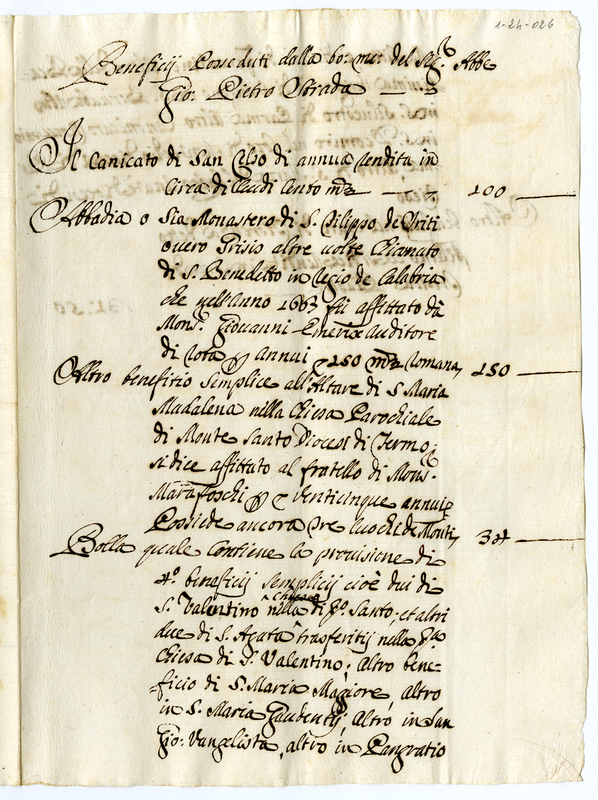 1-24-026
Beneficij Posseduti dalla bo: me: del Sig.r Abbe
Gio: Pietro Strada
Il Canicato di San Celso di annua rendita in
Circa di scudi Cento m.ta 100
Abbadia o sia Monastero di S. Filippo de
overo Grisio altre volte Chiamato
di S. Benedetto in Regio de Calabria
che nell'Anno 1663 fù affittato da
Mons.r Giovanni Emerix Auditore
di Rota p annui 150 m.ta Romana, 150
Altro benefitio semplice all'Altare di S Maria
Madalena nella Chiesa Parochiale
di Monte Santo Diocesi di Fermo:
si dice affittato al fratello di Mons.r
Marafoschi p venticinque annui
Possiede ancora tre luochi de Monti, 34
Bolla quale Contiene la provisione di
4.o beneficij semplicij cioè dui di
S. Valentino nella di Santo; et altri
due di S. Agata trasferitij nella
Chiesa di S. Valentino; Altro bene-
ficio di S. Maria Magiore, Altro
in S. Maria Gaudentij; Altro in San
Gio: Vangelista, altro in Pangratio